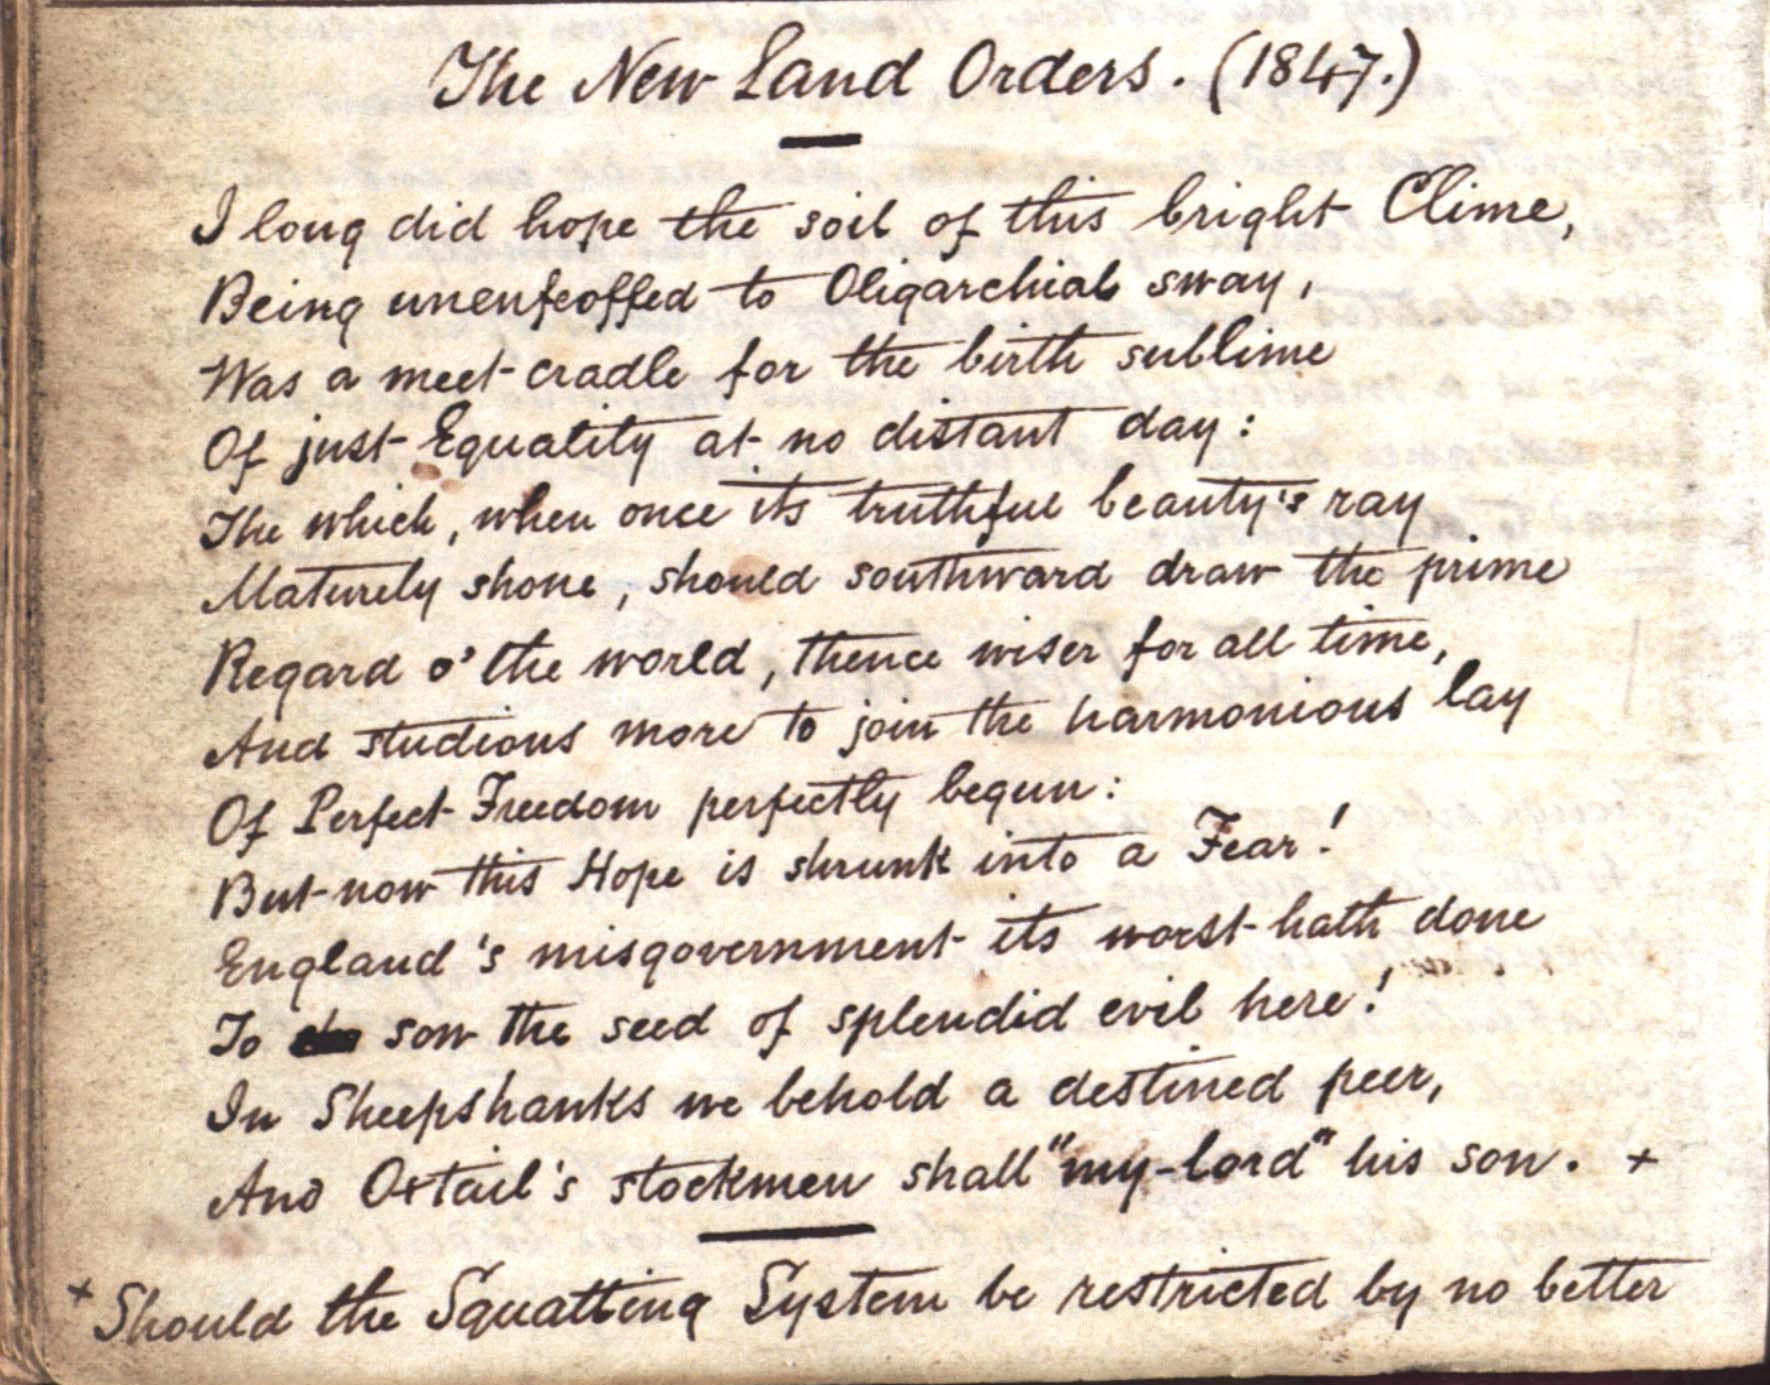 The New Land Orders. (1847.)
I long did hope the soil of this bright Clime,
Being unenfeoffed to Oligarchial sway,
Was a meet cradle for the birth sublime
Of just Equality at no distant day:
The which, when once its truthful beauty's ray
Maturely shone, should southward draw the prime
Regard o' the world, thence wiser for all time,
And studious more to join the harmonious lay
Of Perfect Freedom perfectly begun:
But now this Hope is shrunk into a Fear!
England's misgovernment its worst hath done
To sow the seed of splendid evil here!
In Sheepshanks we behold a destined peer,
And Oxtail's stockmen shall "my-lord" his son. +
+ Should the Squatting System be restricted by no better